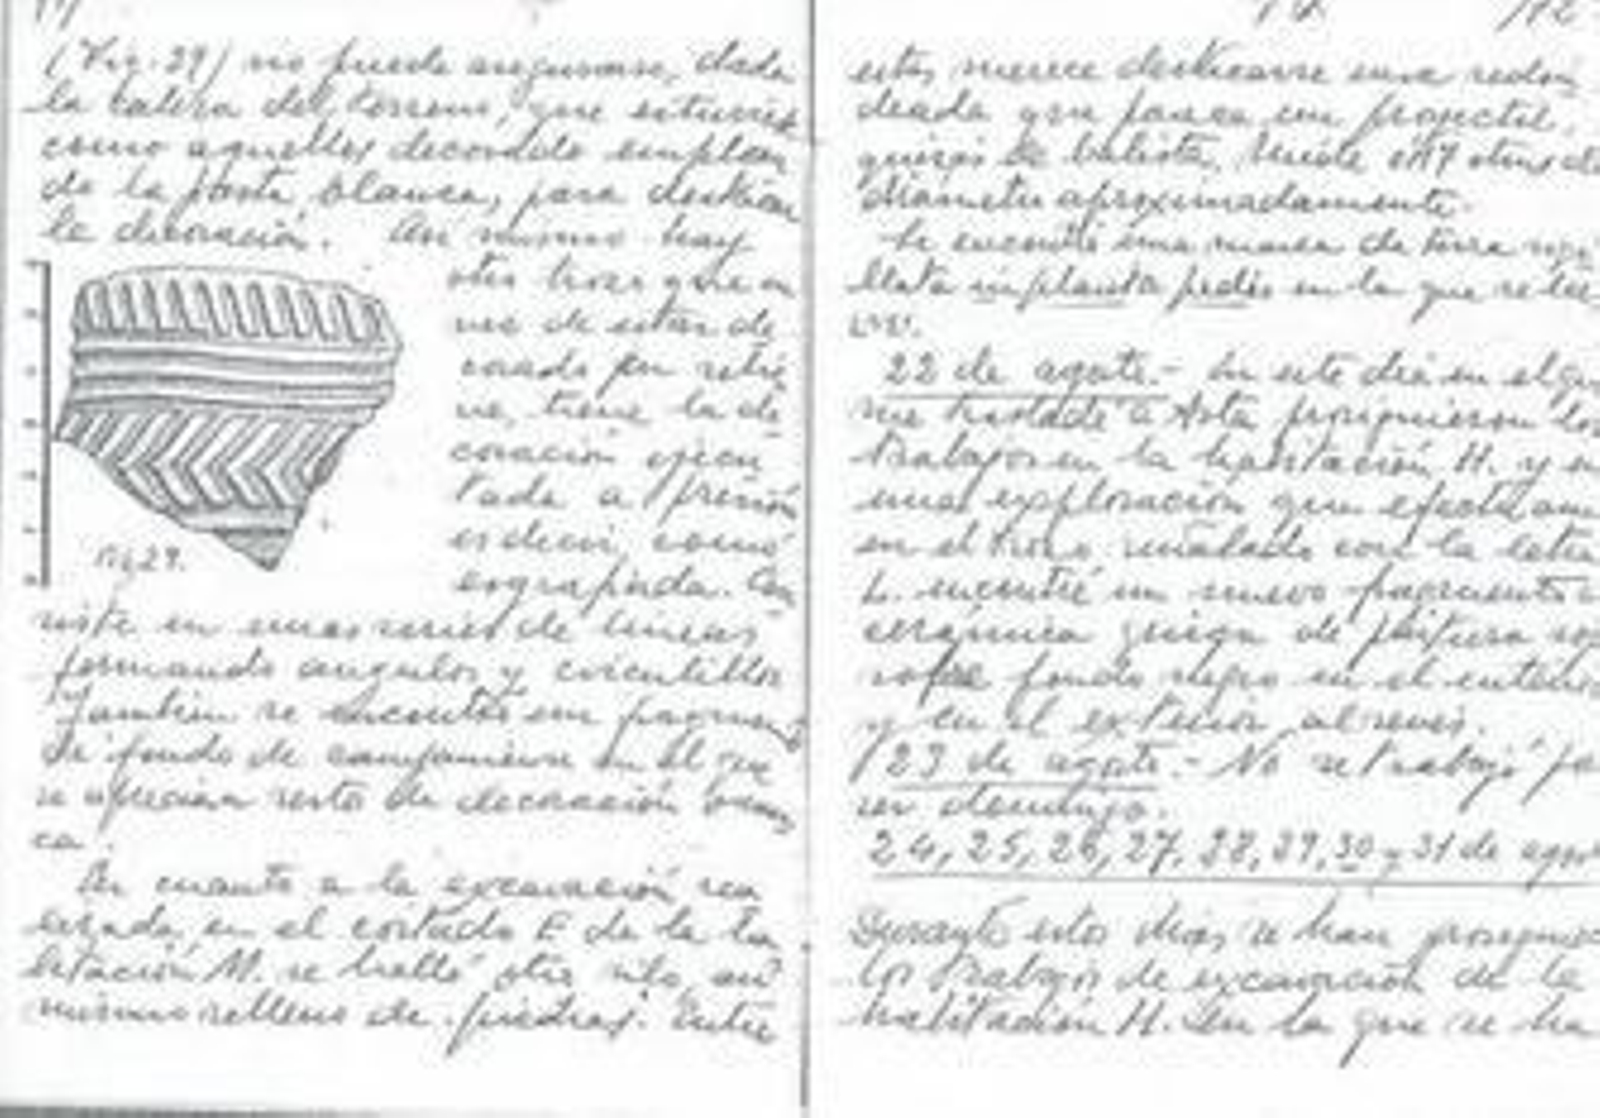 (Fig. 29) no puede asegurarse, dada
la del terreno, que estuviese
como aquellos decorado
de la pasta blanca, para destacar
la decoración. Así mismo hay
otro trozo que en
vez de estar de
corado por relie
ve, tiene la de
coración ejecu
tada a presión
es decir, como
esgrafiada. Con
siste en unas series de líneas
formando angulos y circulillos
Tambien se encontró un fragmento
de fondo de en el que
se aprecian restos de decoración
ca.
En cuanto a la excavación rea
lizada, en el costado E de la ha
bitación M. se halló otro silo, asi
mismo relleno de piedras. Entre
Fig 29.
estas merece destacarse una redon
deada que parece un proyectil,
quizás de balista, mide 0'17 de
diametro aproximadamente.
Se encontró una marca de terra sigi
llata in planta pedis en la que se lee
22 de agosto.- En este dia en el que
me trasladé a Asta prosiguieron los
trabajos en la habitación H. y en
una exploración que efectuamos
en el trozo señalado con la letra
L. encontré un nuevo fragmento
cerámica griega de pintura
sobre fondo negro en el interior
y en el exterior al revés.
23 de agosto.- No se trabajó por
ser domingo.
24, 25, 26, 27, 28, 29, 30 y 31 de agosto
Durante estos dias se han
los trabajos de excavación de la
habitación H. En la que se ha